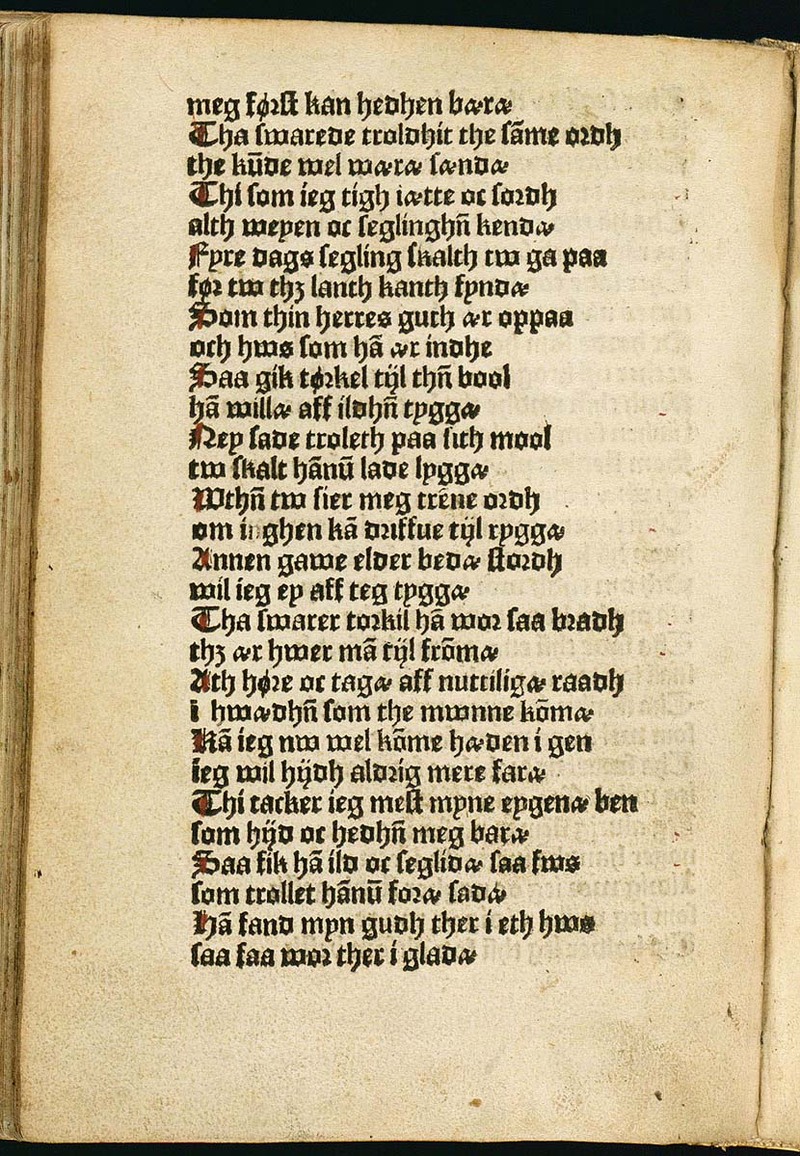 meg først kan hedhen bæræ
Tha swarede troldhit the sãme ordh
the kũde wel wæræ sændæ
Thi som ieg tigh iætte oc fordh
alth weyen oc seglinghñ kendæ
Fyre dags segling skalth tw ga paa
før tw thꝫ lanth kanth fyndæ
Som thin herres guth ær oppaa
och hws som hã ær indhe
Saa gik tørkel tijl thñ bool
hã willæ aff ildhñ tyggæ
Ney sade troleth paa sith mool
tw skalt hãnũ lade lyggæ
Wthñ tw sier meg trẽne ordh
om inghen kã driffue tijl ryggæ
Annen gawe elder bedæ stordh
wil ieg ey aff teg tyggæ
Tha swarer torkil hã wor saa bradh
thꝫ ær hwer mã tijl frõmæ
Ath høre oc tagæ aff nuttiligæ raadh
i hwædhñ som the mwnne kõmæ
Kã ieg nw wel kõme hæden i gen
ieg wil hijdh aldrig mere faræ
Thi tacker ieg mest myne eygenæ ben
som hijd oc hedhñ meg baræ
Saa fik hã ild oc seglidæ saa fws
som trollet hãnũ foræ sadæ
Hã fand myn gudh ther i eth hws
saa faa wor ther i gladæ